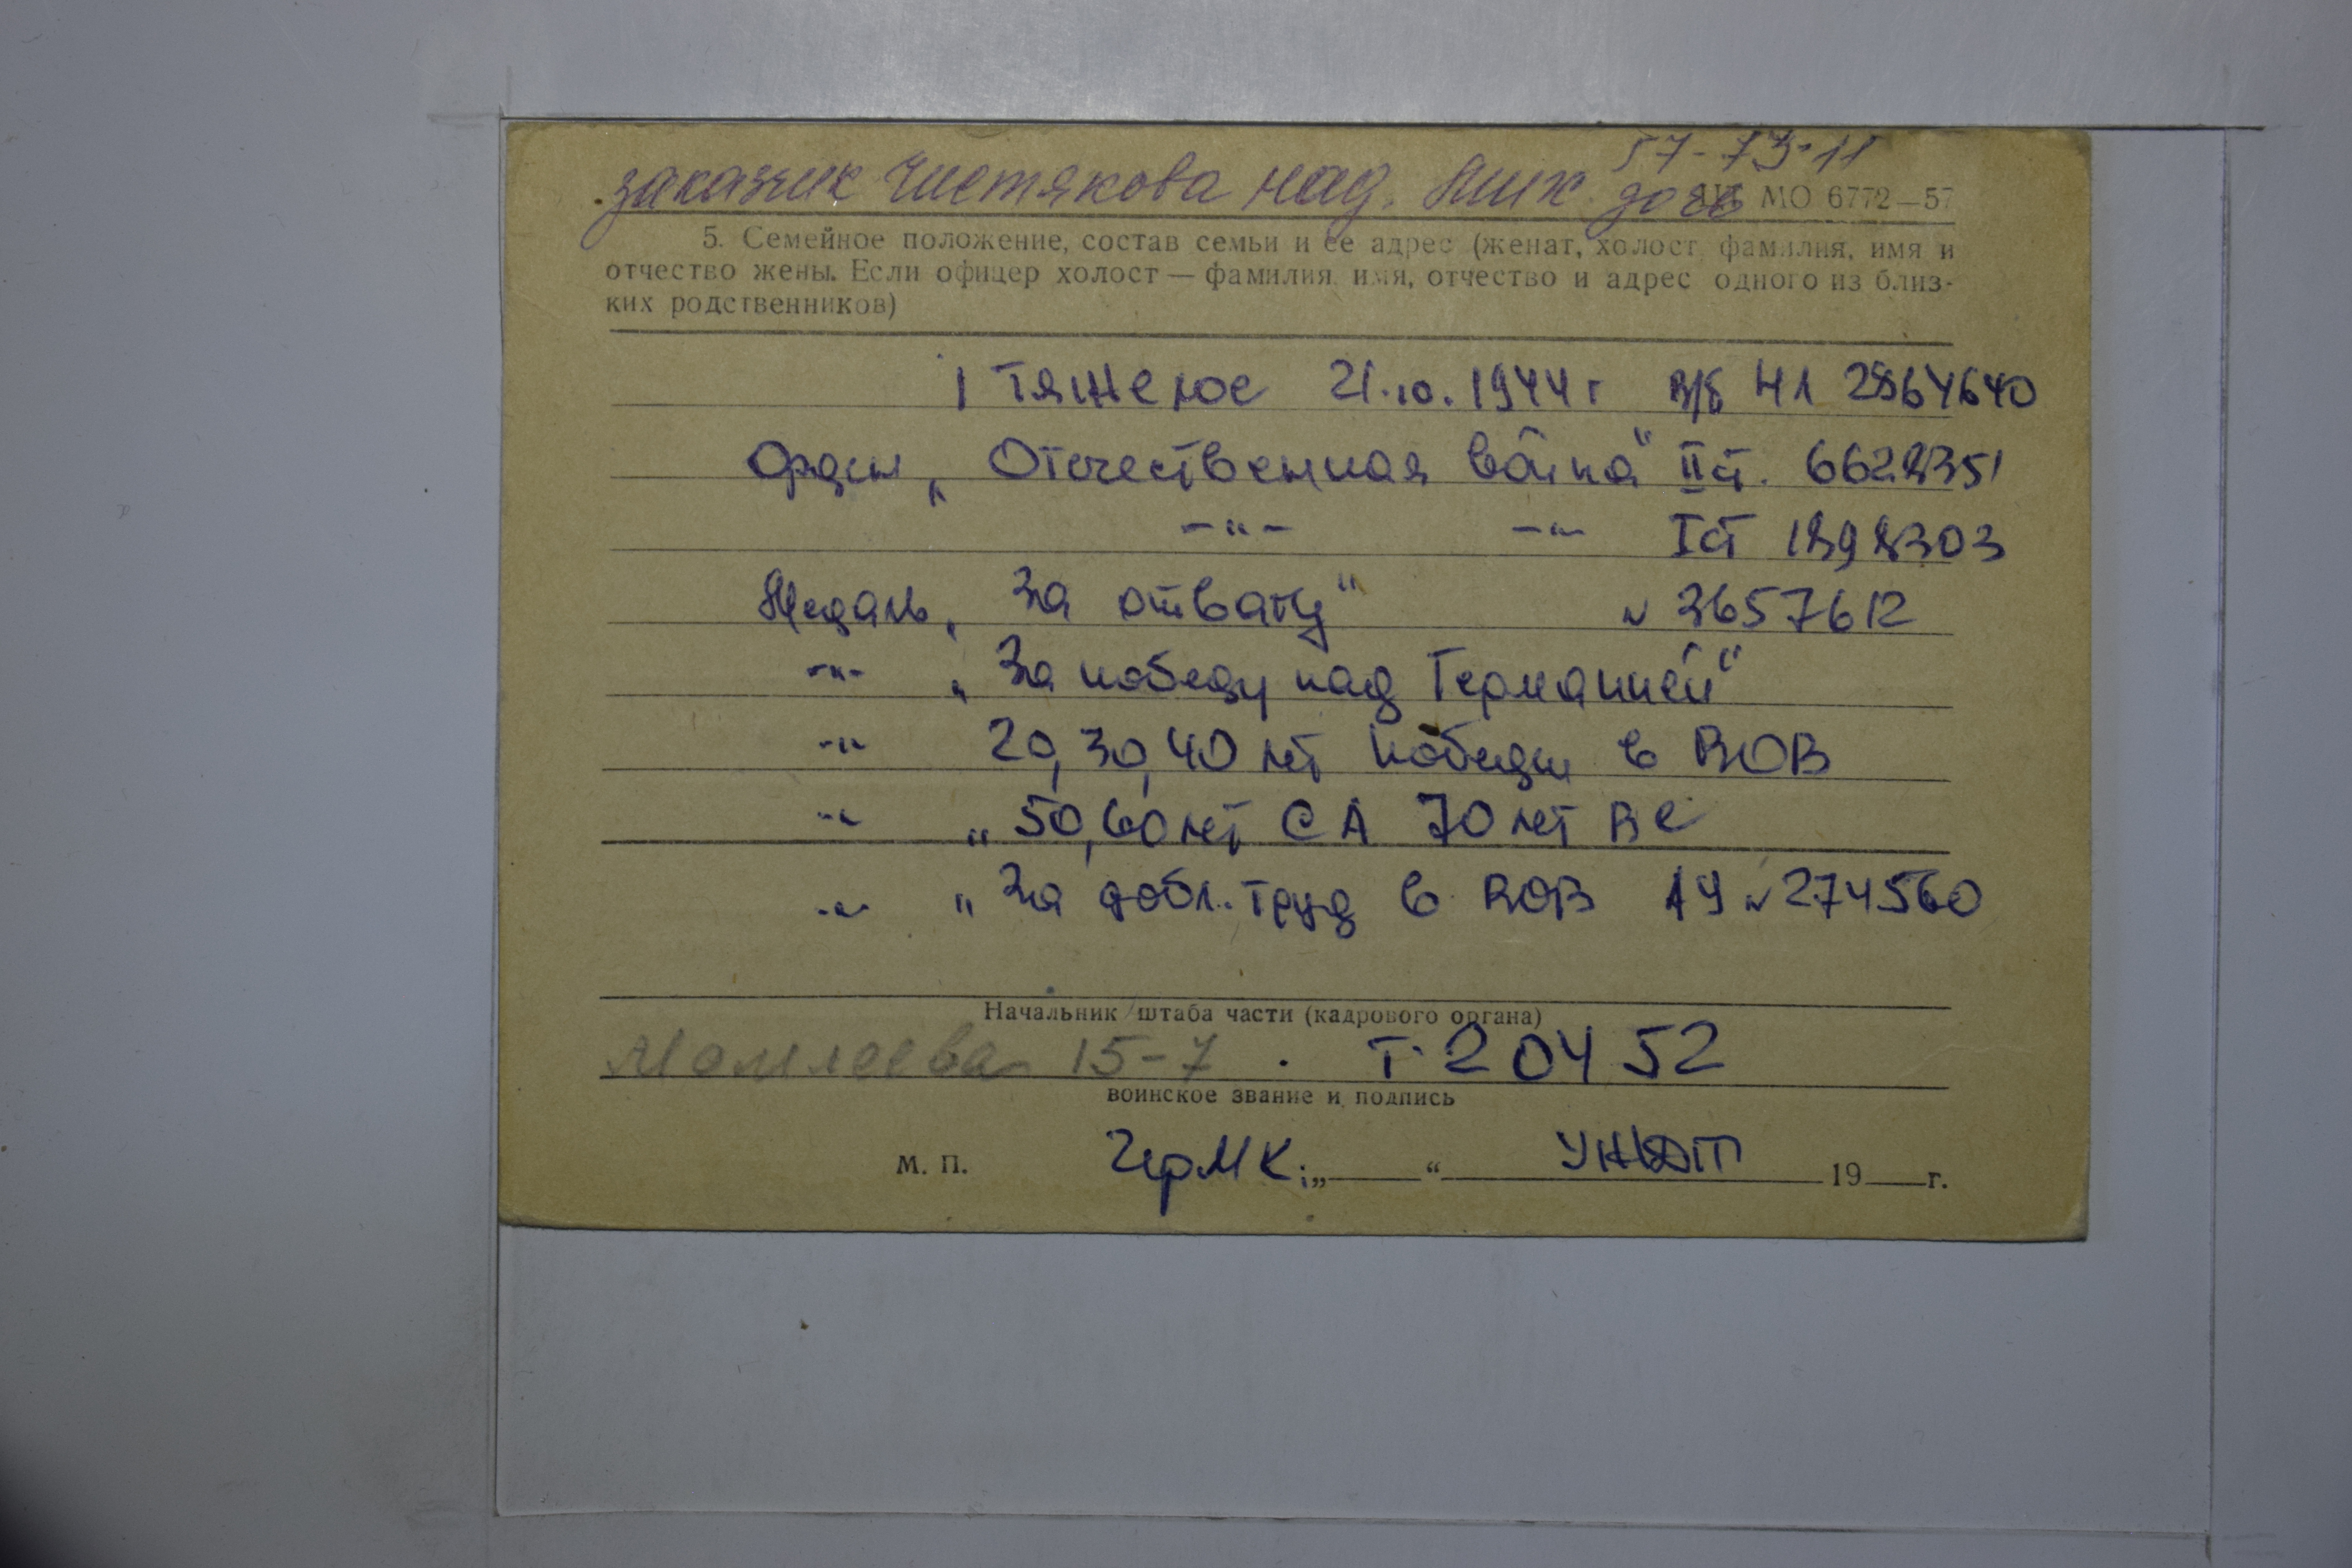 57-73-11
заказчик Чистякова над. Ник. дочь
МО 6772—57
5. Семейное положение, состав семьи и ее адрес (женат, холост, фамилия, имя и
отчество жены. Если офицер холост — фамилия, имя, отчество и адрес одного из близ-
ких родственников)
1 тяжелое 21.10.1944 г в/б Н1 2864640
Орден „Отечественная война" II ст. 6628351
-"- -"- I ст 1898303
Медаль „За отвагу" № 3657612
-"- „За победу над Германией"
-"- 20, 30, 40 лет победы в ВОВ
-"- „50, 60 лет СА 70 лет ВС
-"- „За добл. труд в ВОВ № 274560
Начальник штаба части (кадрового органа)
15-7 . Т-20452
воинское звание и подпись
М. П. ЧерМК; „ “ УЖДТ 19 г.